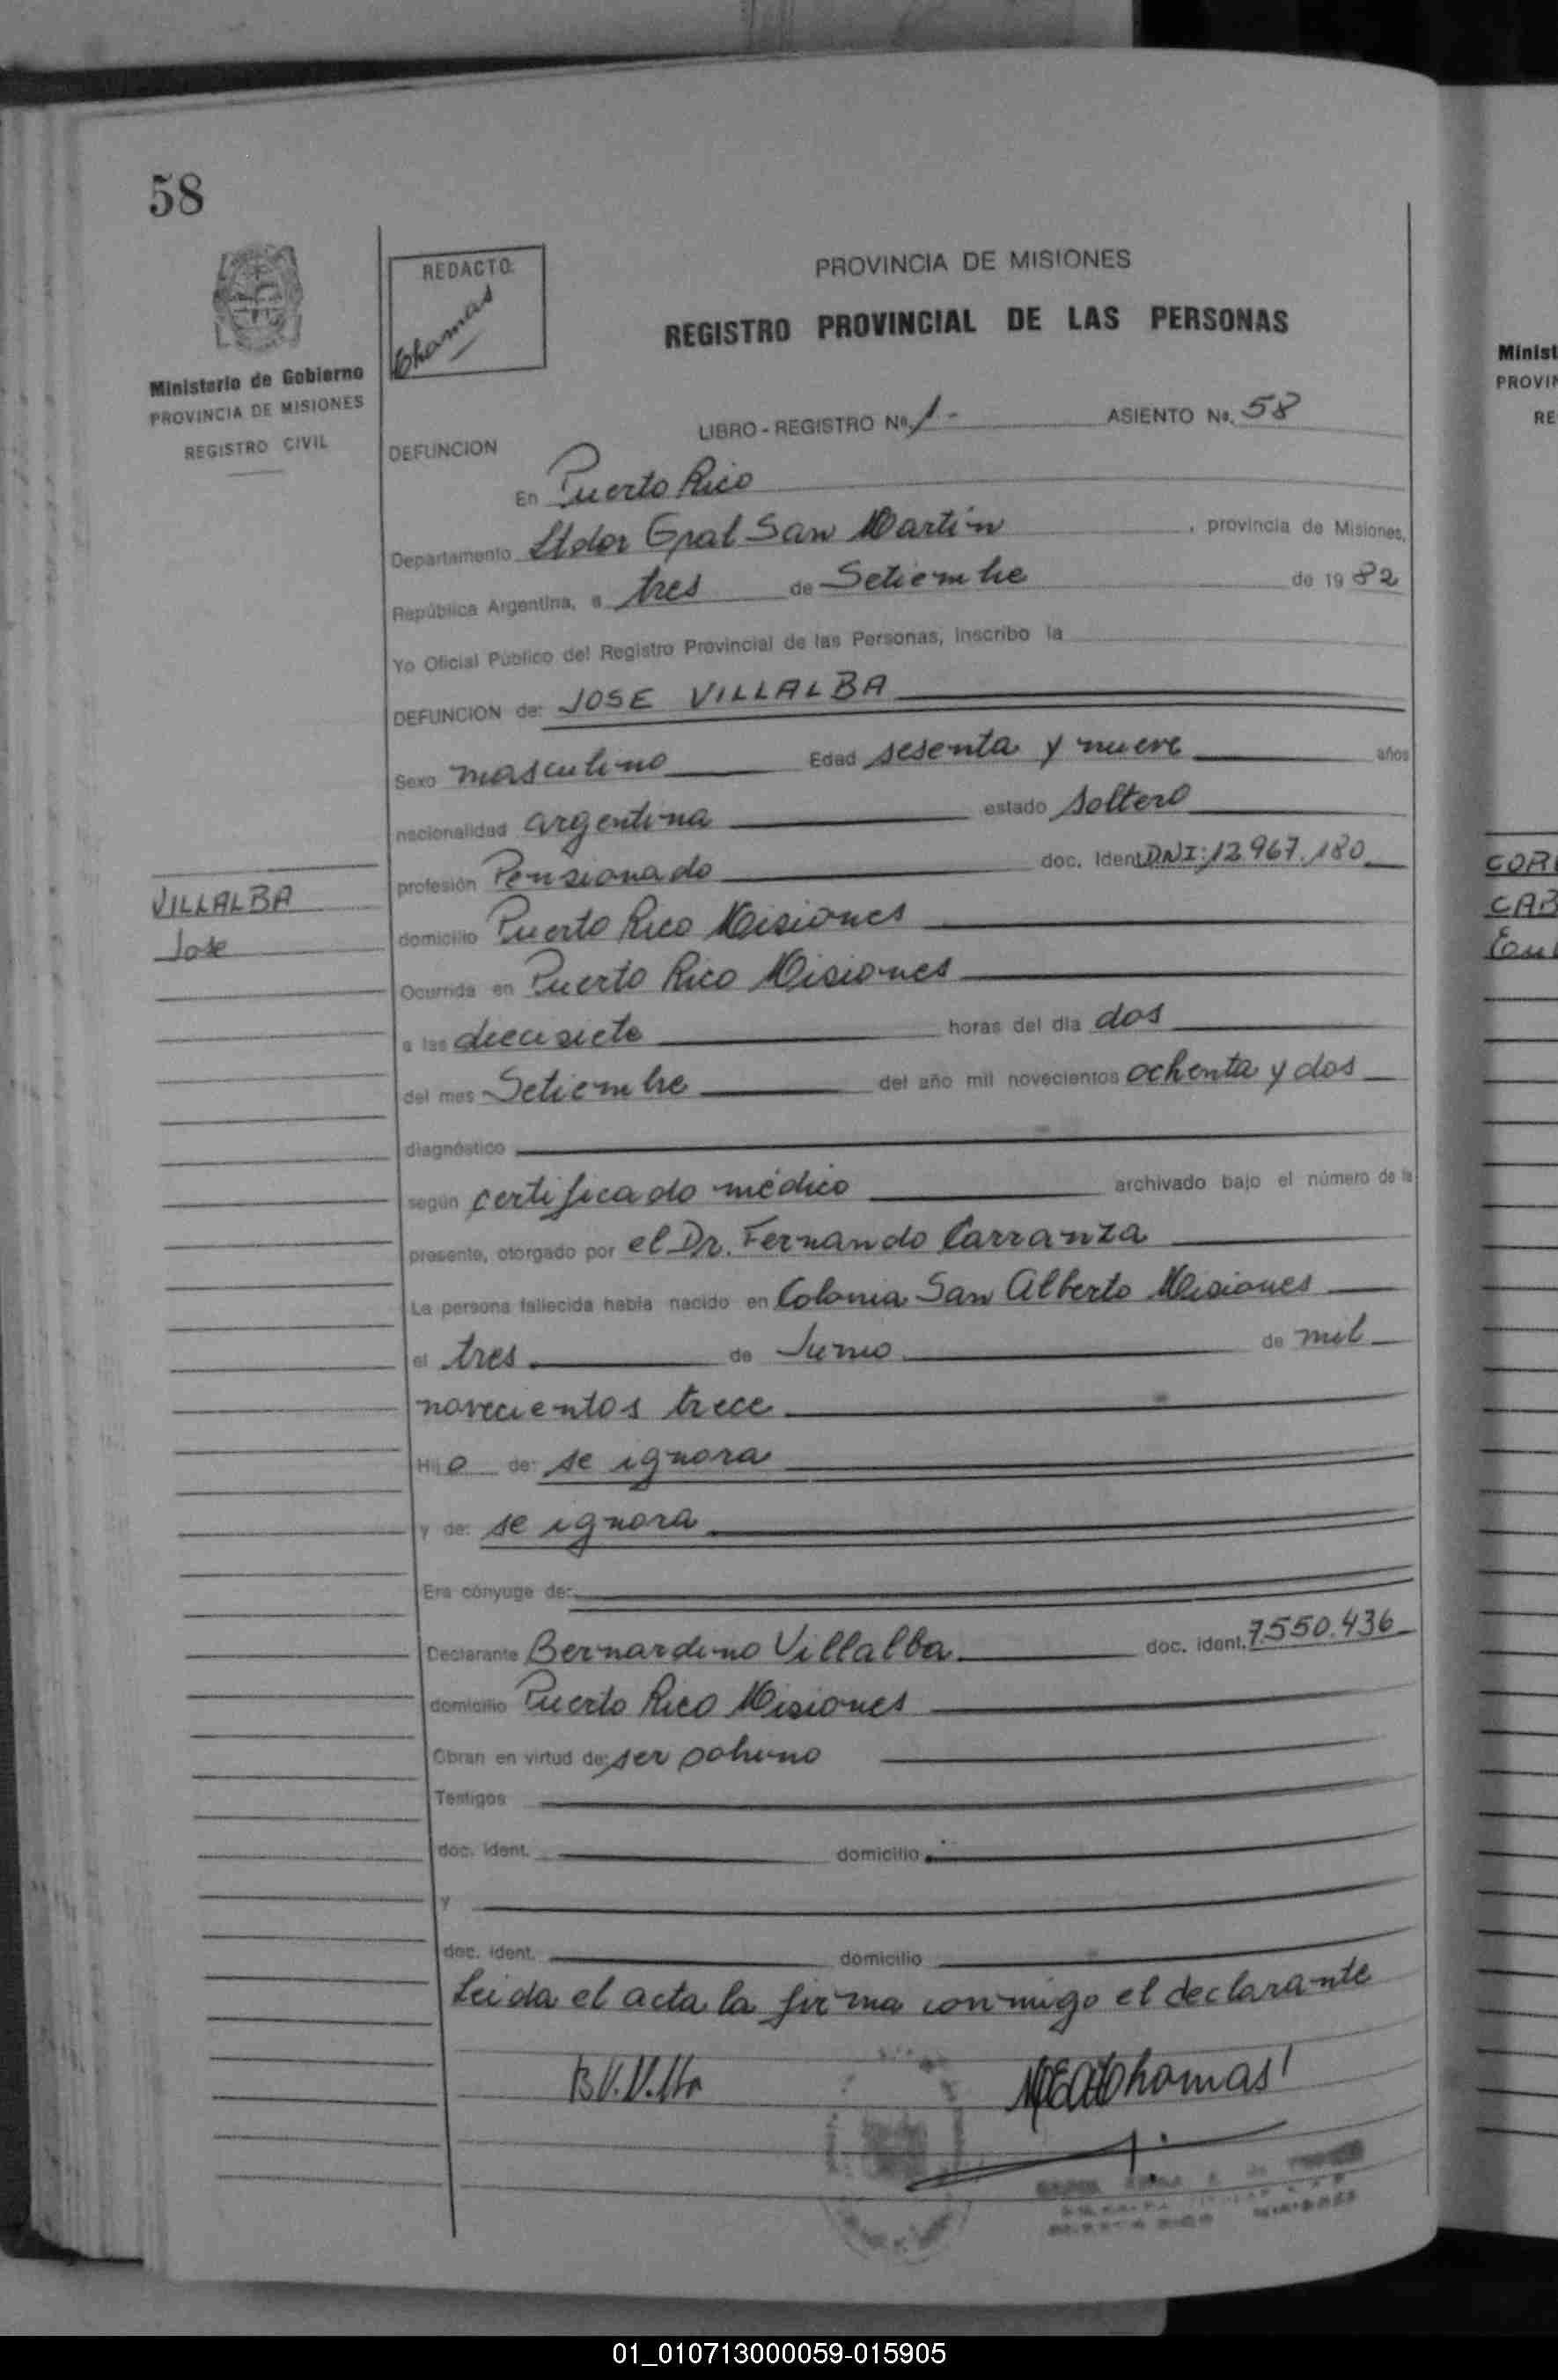 58
REDACTO:
Thomas
PROVINCIA DE MISIONES
REGISTRO PROVINCIAL DE LAS PERSONAS
Ministerio de Gobierno
PROVINCIA DE MISIONES
REGISTRO CIVIL
LIBRO - REGISTRO No. 1 - ASIENTO No. 58
DEFUNCION
En Puerto Rico
Departamento Ltdor Gral San Martin , provincia de Misiones,
República Argentina, a tres de Setiembre de 1982
Yo Oficial Público del Registro Provincial de las Personas, inscribo la
DEFUNCION de: JOSE VILLALBA
Sexo masculino Edad sesenta y nueve años
nacionalidad argentina estado soltero
profesión Pensionado doc. Ident. DNI: 12.967.180
VILLALBA
Jose
domicilio Puerto Rico Misiones
Ocurrida en Puerto Rico Misiones
a las diecisiete horas del día dos
del mes Setiembre del año mil novecientos ochenta y dos
diagnóstico
según certificado médico archivado bajo el número de la
presente, otorgado por el Dr. Fernando Carranza
La persona fallecida había nacido en Colonia San Alberto Misiones
el tres de Junio de mil
novecientos trece
Hijo de: se ignora
y de: se ignora
Era cónyuge de:
Declarante Bernardino Villalba doc. ident. 7.550.436
domicilio Puerto Rico Misiones
Obran en virtud de: ser sobrino
Testigos
doc. ident. domicilio
y
doc. ident. domicilio
Leida el acta la firma conmigo el declarante
Minist
PROVIN
RE
COR
CAB
01_010713000059-015905